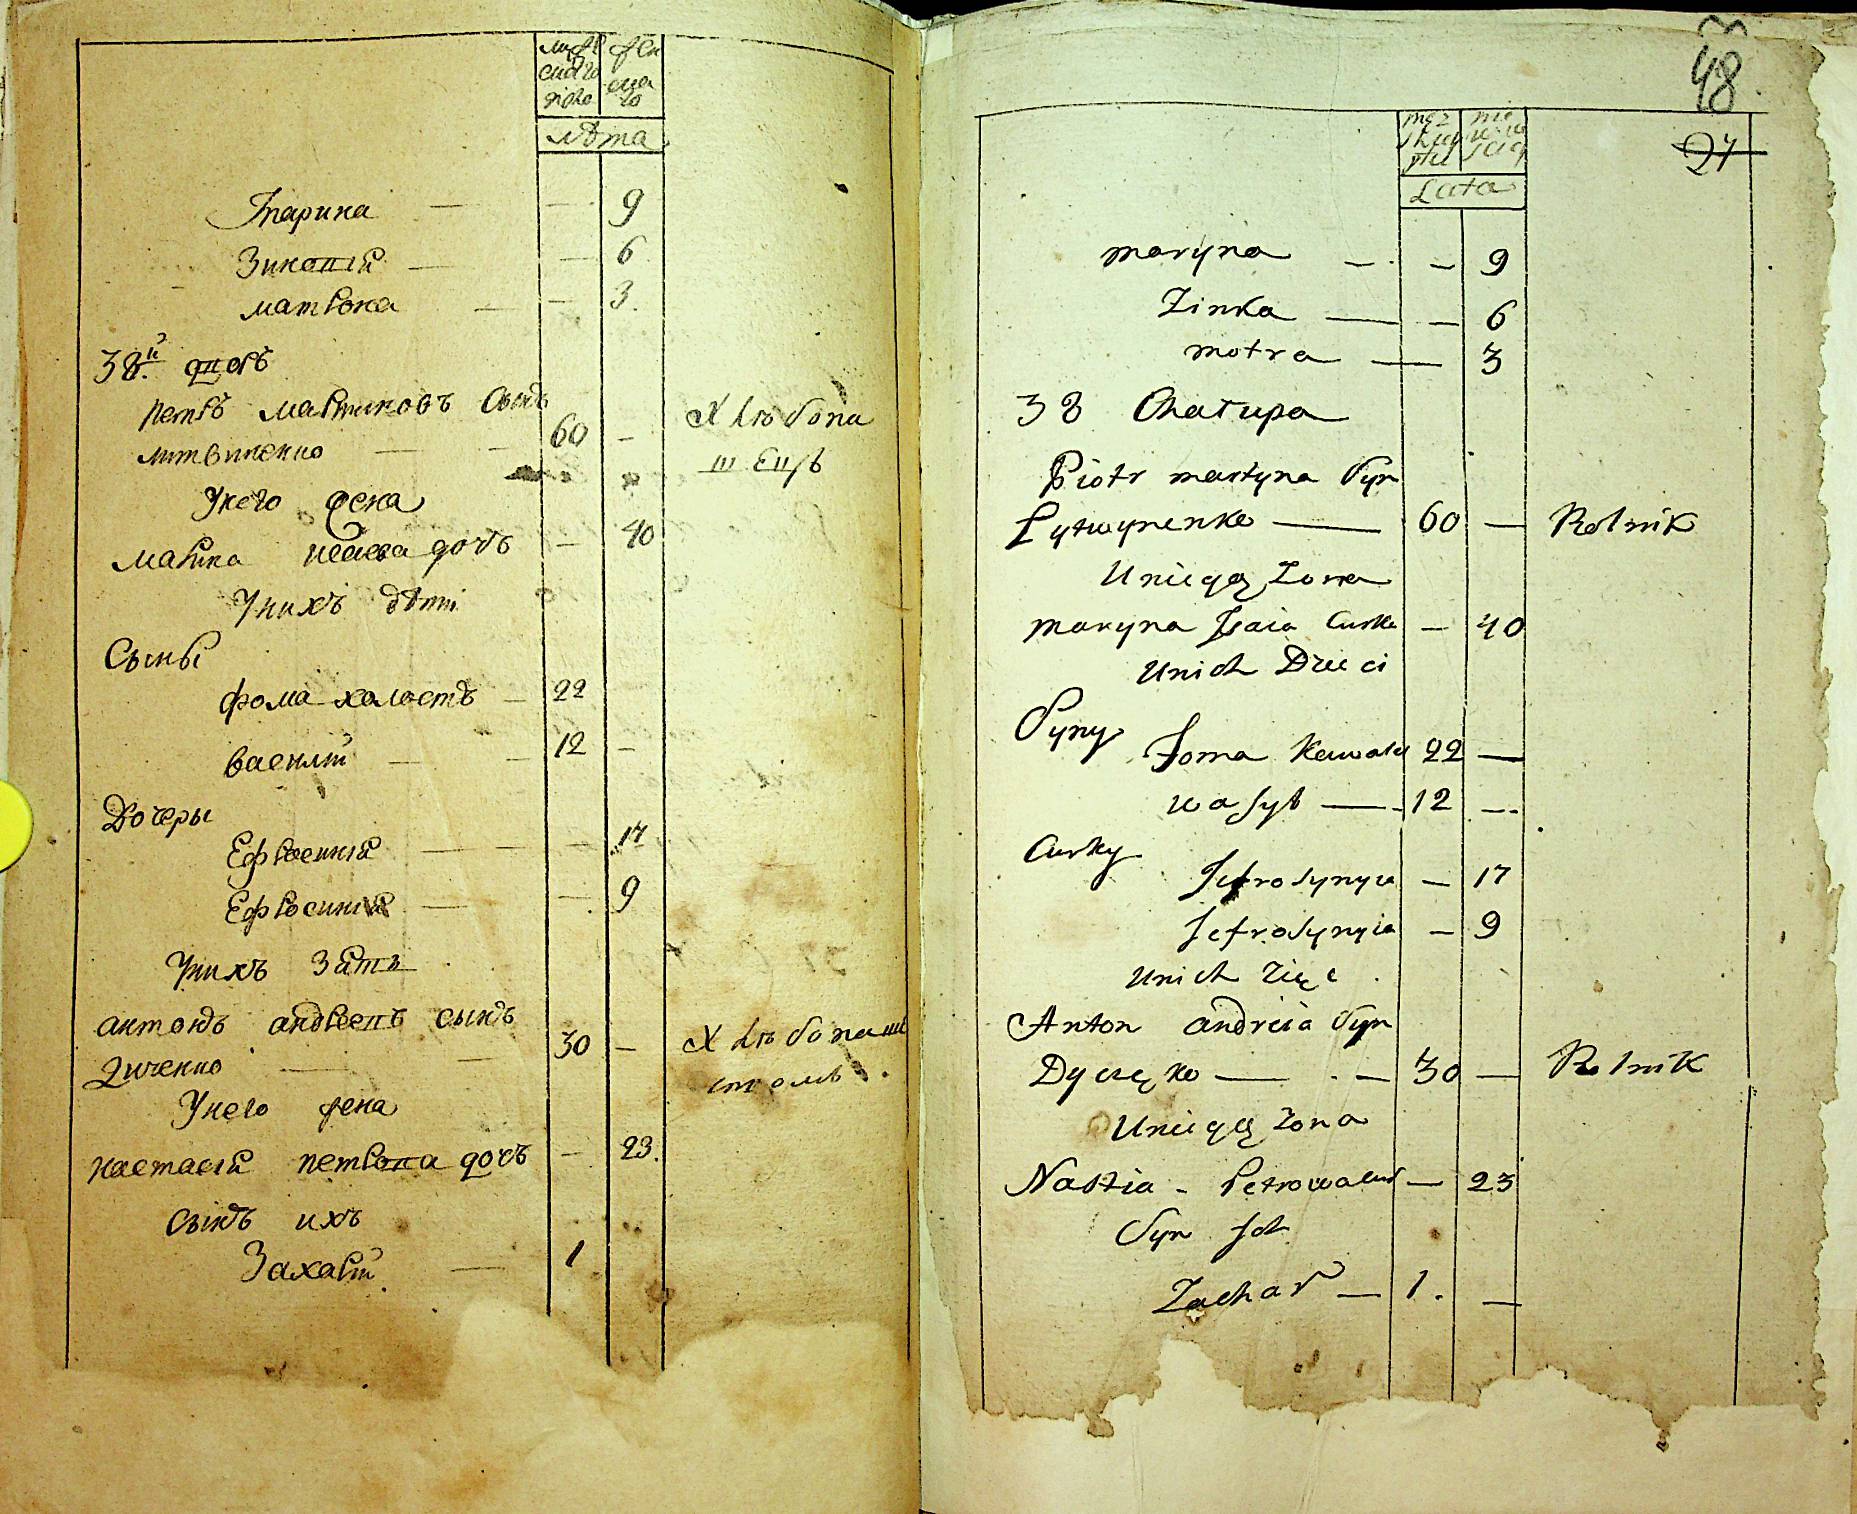 мужескаго женскаго
лѣта
Марина — — 9
Зиновій — — 6
матрона — — 3.
38й дворъ
петръ мартиновъ сынъ
литвиненко — 60 — Хлѣбопа
шецъ
Унего жена
марина исаева дочь — 40
Унихъ дѣти
Сыны
фома холостъ — 22
василій — 12 —
Дочеры
Ефросиній — — 17
Ефросиній — — 9
Унихъ зять
антонъ андреевъ сынъ
Диченко — 30 — Хлѣбопаш
Унего жена
настасій петрова дочь — 23.
сынъ ихъ
Захарій — 1
48
27
Lata
maryna — — 9
Zinka — — 6
motra — 3
38 Chałupa
Piotr martyna Syn
Lytwynenko — 60 — Rolnik
Uniego Zona
maryna Isaia Curka — 40
Unich Dzieci
Syny
Foma Kawaler 22 —
wasyl — 12 —
Curky
Jefrosynyia — 17
Jefrosynyia — 9
Unich Zięć
Anton andreia Syn
Dyczęko — — 30 — Rolnik
Uniego Zona
Nastia - Petrowa — 23
Syn Ich
Zachar — 1. —